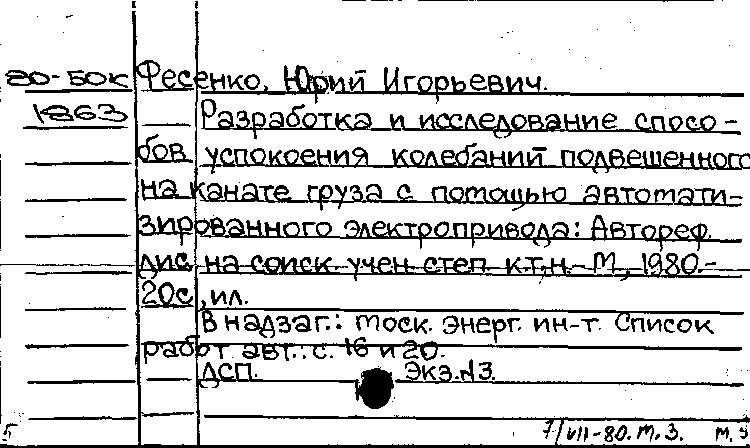 80-БОК Фесенко, Юрий Игорьевич.
1863 Разработка и исследование спосо-
бов успокоения колебаний подвешенного
на канате груза с помощью автомати-
зированного электропривода: Автореф.
дис. на соиск. учен. степ. к.т.н. - М., 1980.-
20с., ил.
В надзаг.: Моск. энерг. ин-т. Список
работ авт.: с. 16 и 20.
ДСП. Экз.N3.
5 7/VII-80. М.З. М.З